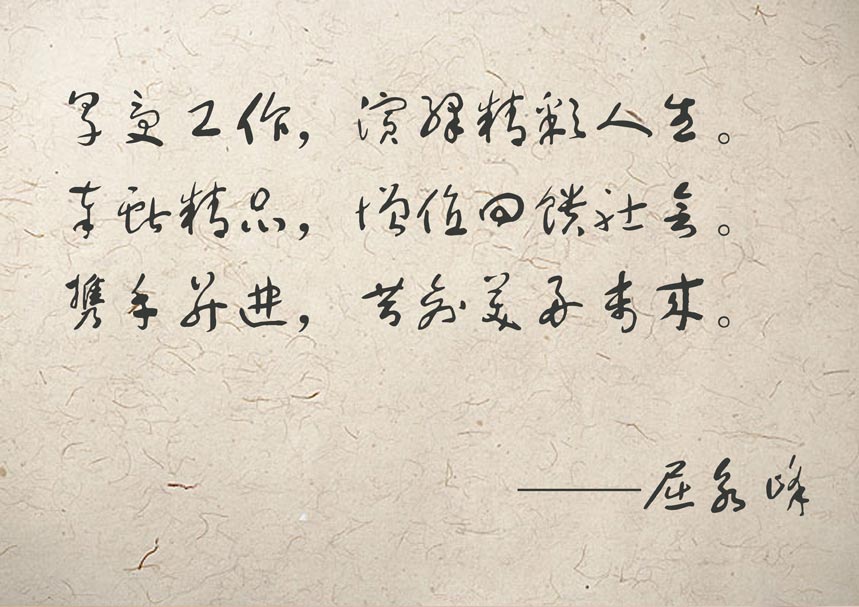 享受工作，演绎精彩人生。
奉献精品，增值回馈社会。
携手并进，共创美好未来。
——屈永峰